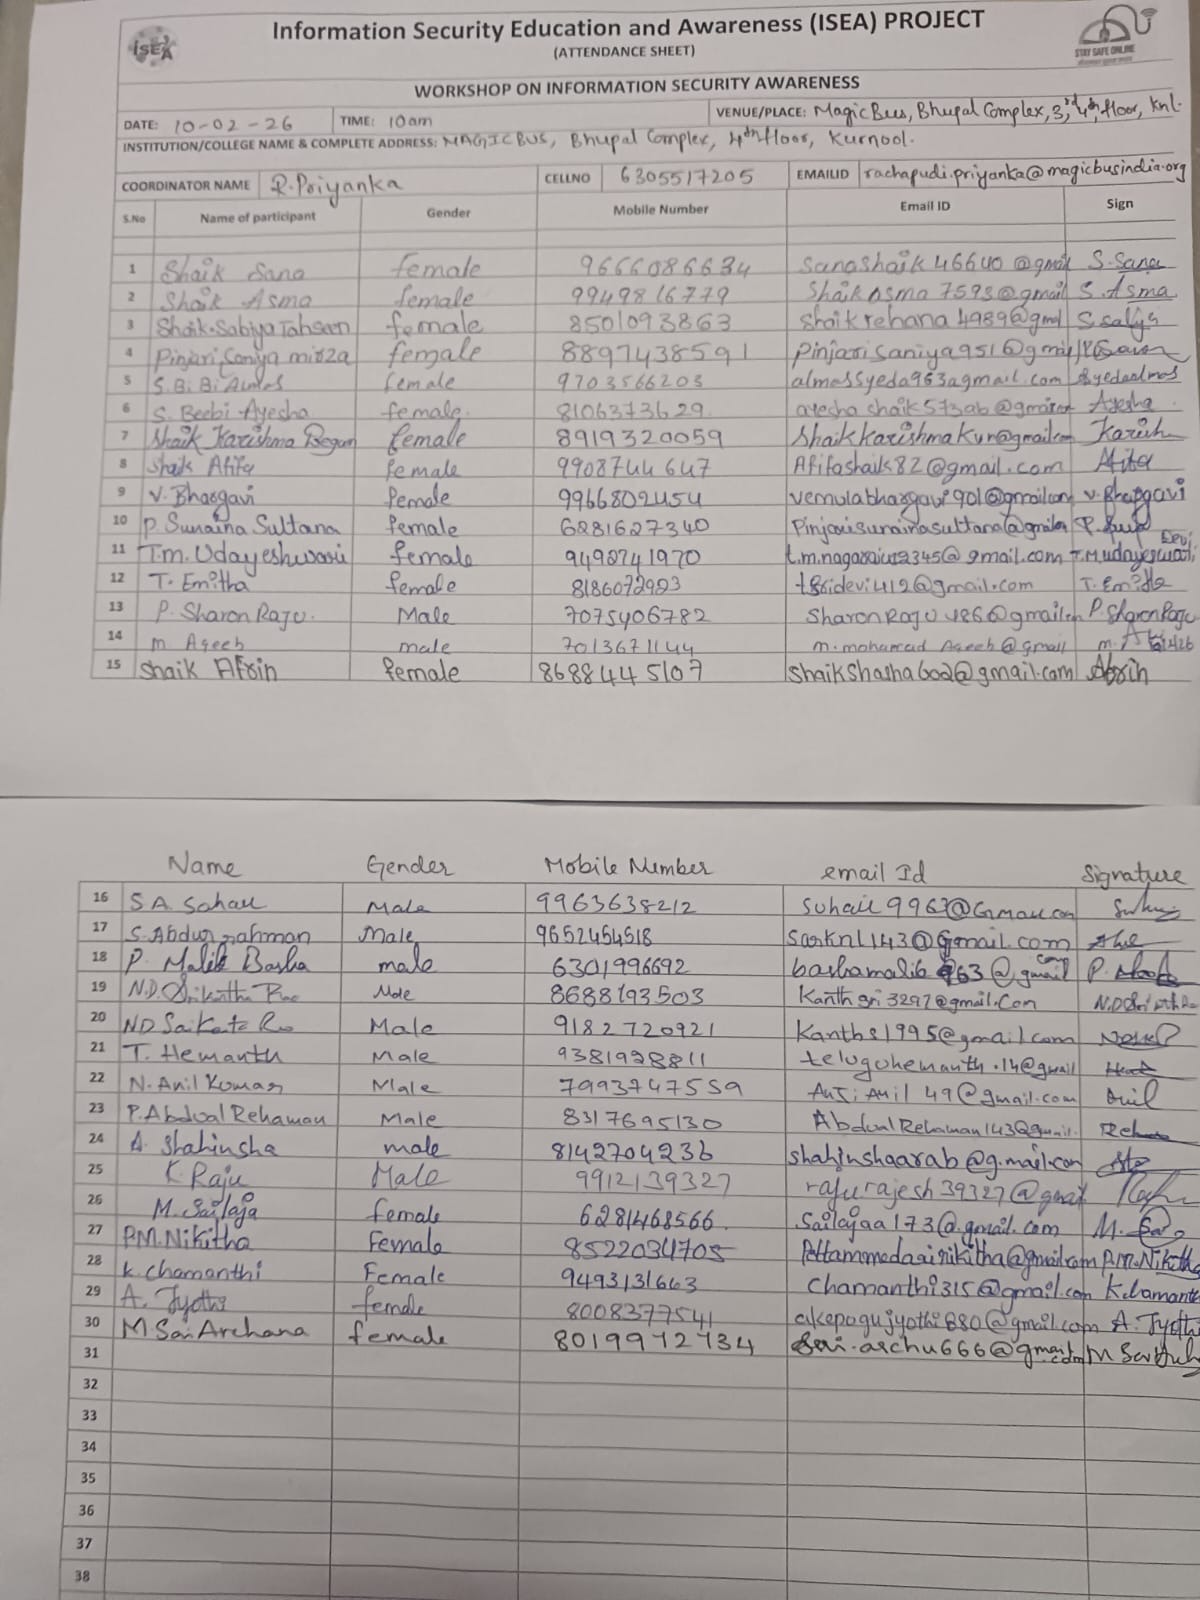 Information Security Education and Awareness (ISEA) PROJECT
(ATTENDANCE SHEET)
ISEA
STAY SAFE ONLINE
WORKSHOP ON INFORMATION SECURITY AWARENESS
DATE: 10-02-26 TIME: 10am VENUE/PLACE: Magic Bus, Bhupal Complex, 3rd, 4th floor, Knl.
INSTITUTION/COLLEGE NAME & COMPLETE ADDRESS: MAGIC BUS, Bhupal Complex, 4th floor, Kurnool.
COORDINATOR NAME R.Priyanka CELLNO 6305517205 EMAILID rachapudi.priyanka@magicbusindia.org
S.No Name of participant Gender Mobile Number Email ID Sign
1 Shaik Sana female 9666086634 Sanashaik46640@gmail S.Sana
2 Shaik Asma female 9949816779 ShaikAsma7593@gmail S.Asma
3 Shaik.Sabiya Tahseen female 8501093863 Shaikrehana4989@gmail
4 Pinjari Saniya mirza female 8897438591 Pinjarisaniya951@gmail
5 S.Bi.Bi Almas female 9703566203 almassyeda963agmail.com Syedaalmas
6 S. Beebi Ayesha female. 8106373629 Ayesha
7 Shaik Karishma Begum female 8919320059 Shaikkarishmakur@gmail.com Karish
8 Shaik Afifa female 9908744647 Afifashaik82@gmail.com Afifa
9 V. Bhargavi female 9966802454 vemulabhargavi901@gmail.com V.Bhargavi
10 P. Sunaina Sultana female 6281627340 Pinjarisunainasultana@gmail
11 T.m. Udayeshwari female 9492741970 T.M.udayeswari Devi
12 T. Emitha female 8186072923 tsridevi412@gmail.com T. Emitha
13 P. Sharon Raju. Male 7075406782 SharonRaju486@gmail.com P. Sharon Raju
14 M. Aqeeb male 7013671144 m.mohamad Aqeeb@gmail
15 Shaik Afrin female 8688445107 shaikShasha602@gmail.com Afrin
Name Gender Mobile Number email Id Signature
16 S.A. Sahau Male 9963638212 suhail9963@Gmail.com
17 S.Abdur rahman Male 9652454518 Sarknl143@gmail.com
18 P. Malik Basha male 6301996692 bashamalib963@gmail com
19 N.D. Srikantha Rao Male 8688193503 Kanthsri3297@gmail.Com
20 ND Male 9182720921 Kanths1995@gmail.com
21 T. Hemanth Male 9381928811 telugohemanth.14@gmail
22 N. Anil Kumar Male 7993747559 Anji Anil 49@gmail.com Anil
23 P.Abdual Rehaman Male 8317695130 AbdualRehaman143@gmail.
24 A. Shahinsha male 8142704236 shahinshaarab@g.mail.com
25 K Raju Male 9912139327 rajurajesh39327@gmail Raju
26 M. Sailaja female 6281468566. Sailajaa173@.gmail.com
27 P.M.Nikitha Female 8522034705 Pettammadagirinikitha@gmail.com P.M.Nikitha
28 K.Chamanthi Female 9493131663 Chamanthi315@gmail.com K.Chamanthi
29 A. Jyothi female 8008377541 akepogujyothi880@gmail.com A. Jyothi
30 M Sai Archana female 8019912734 Sai.archu666@gmail.com
31
32
33
34
35
36
37
38